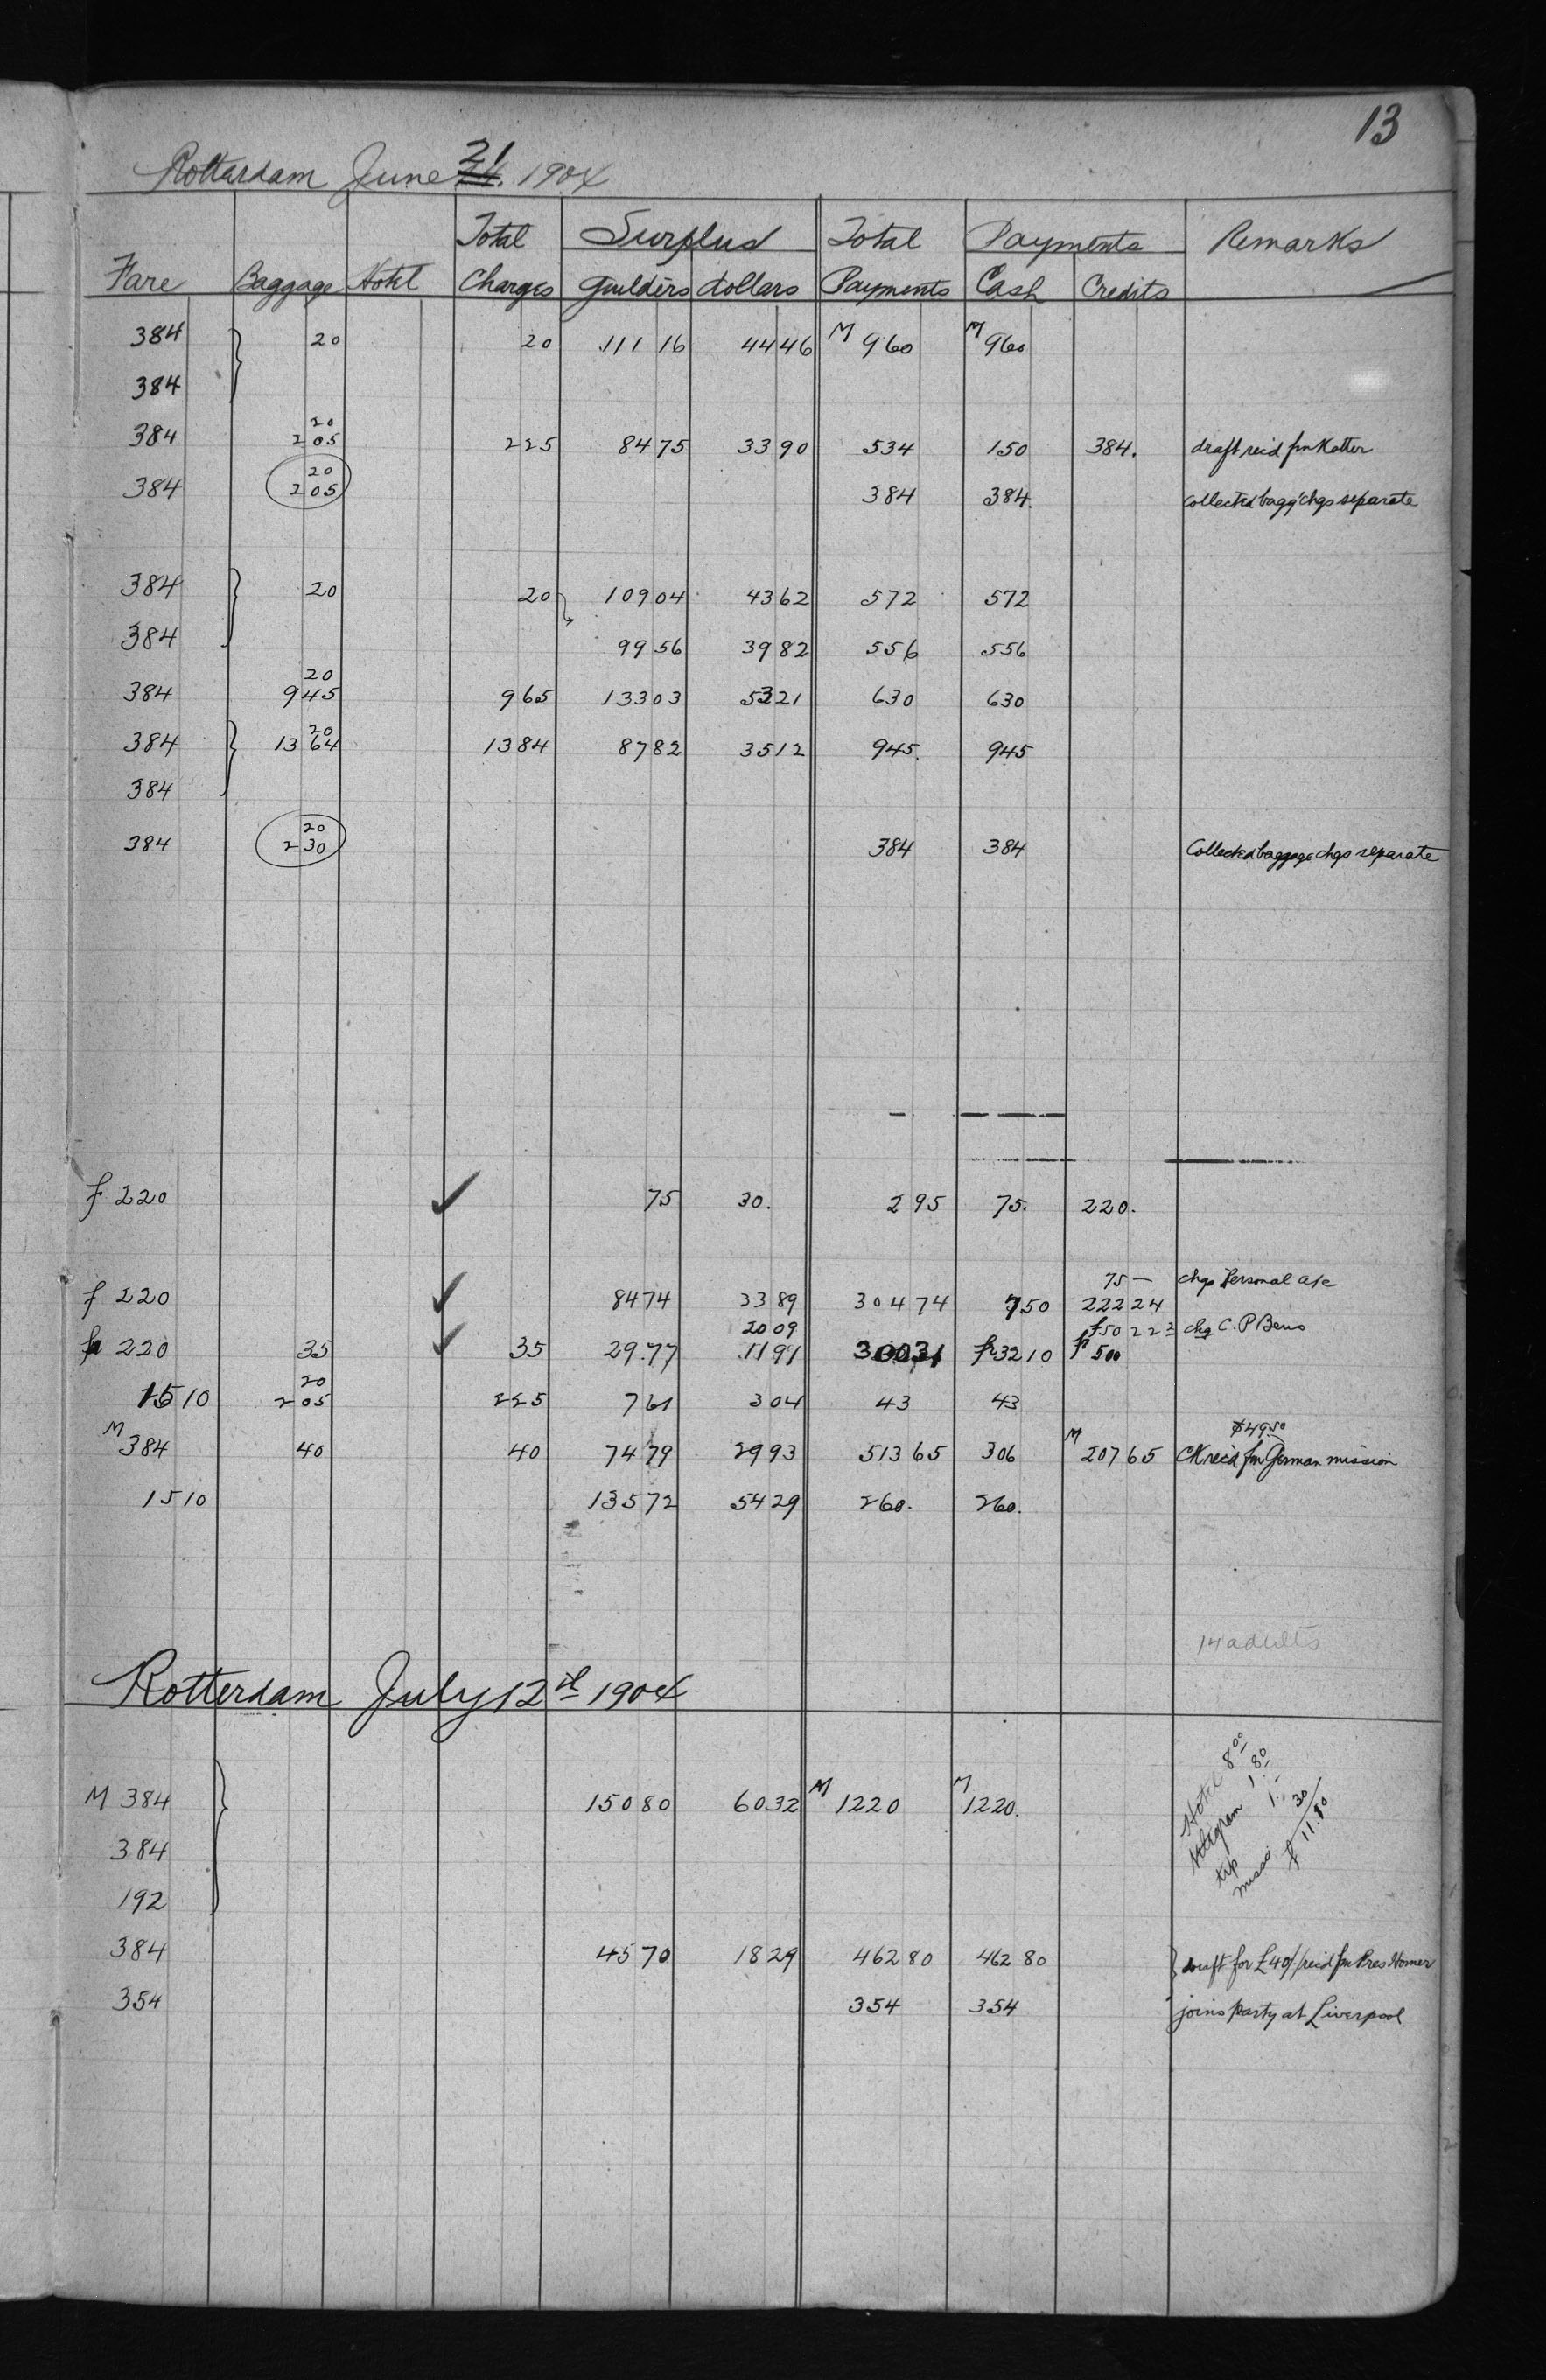 13
Rotterdam June 24. 21 1904
Total Surplus Total Payments Remarks
Fare Baggage Hotel Charges Guilders dollars Payments Cash Credits
384 20 20 111 16 44 46 M 960 M 960
384
20
384 2 05 2 25 84 75 33 90 534 150 384. draft rec'd fm Ketter
20
384 2 05 384 384. Collected bagg chgs separate
384 20 20 109 04 43 62 572 572
384 99 56 39 82 556 556
20
384 9 45 9 65 133 03 53 21 630 630
20
384 13 64 13 84 87 82 35 12 945. 945
384
20
384 2 30 384 384 Collected baggage chgs separate
f 220 ✓ 75 30. 295 75. 220.
75 — chgs Personal a/c
f 220 ✓ 84 74 33 89 304 74 7 50 222 24
20 09 f50 22 2 chg C. P Bens
220 35 ✓ 35 29.77 11 91 300 31 fr 32 10 fr 500
20
15 10 2 05 2 25 7 61 3 04 43 43
$49.50
M 384 40 40 74 79 29 93 513 65 306 M 207 65 CK rec'd fm German mission
15 10 135 72 54 29 260. 260.
14 adults
Rotterdam July 12th 1904
Hotel 8 00
telegram 1. 80
tip 1.-
misso 30
f 11.10
M 384 150 80 60 32 M 1220 M 1220.
384
192
384 45 70 18 29 462 80 462 80 draft for £40/ rec'd fm Pres Homer
354 354 354 joins party at Liverpool